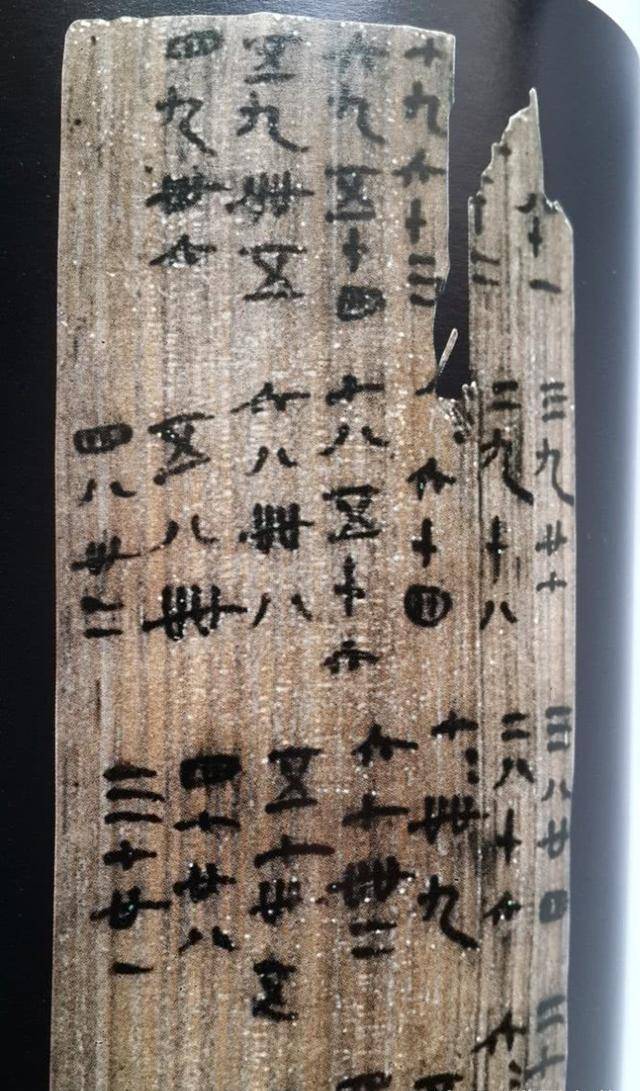 十一
十二
七九六十三
六九五十四
五九卌五
四九卅六
三九廿七
二九十八
六十四
七八五十六
六八卌八
五八卌
四八卅二
三八廿四
二八十六
七七卌九
六七卌二
五七卅五
四七廿八
三七廿一
二七
六